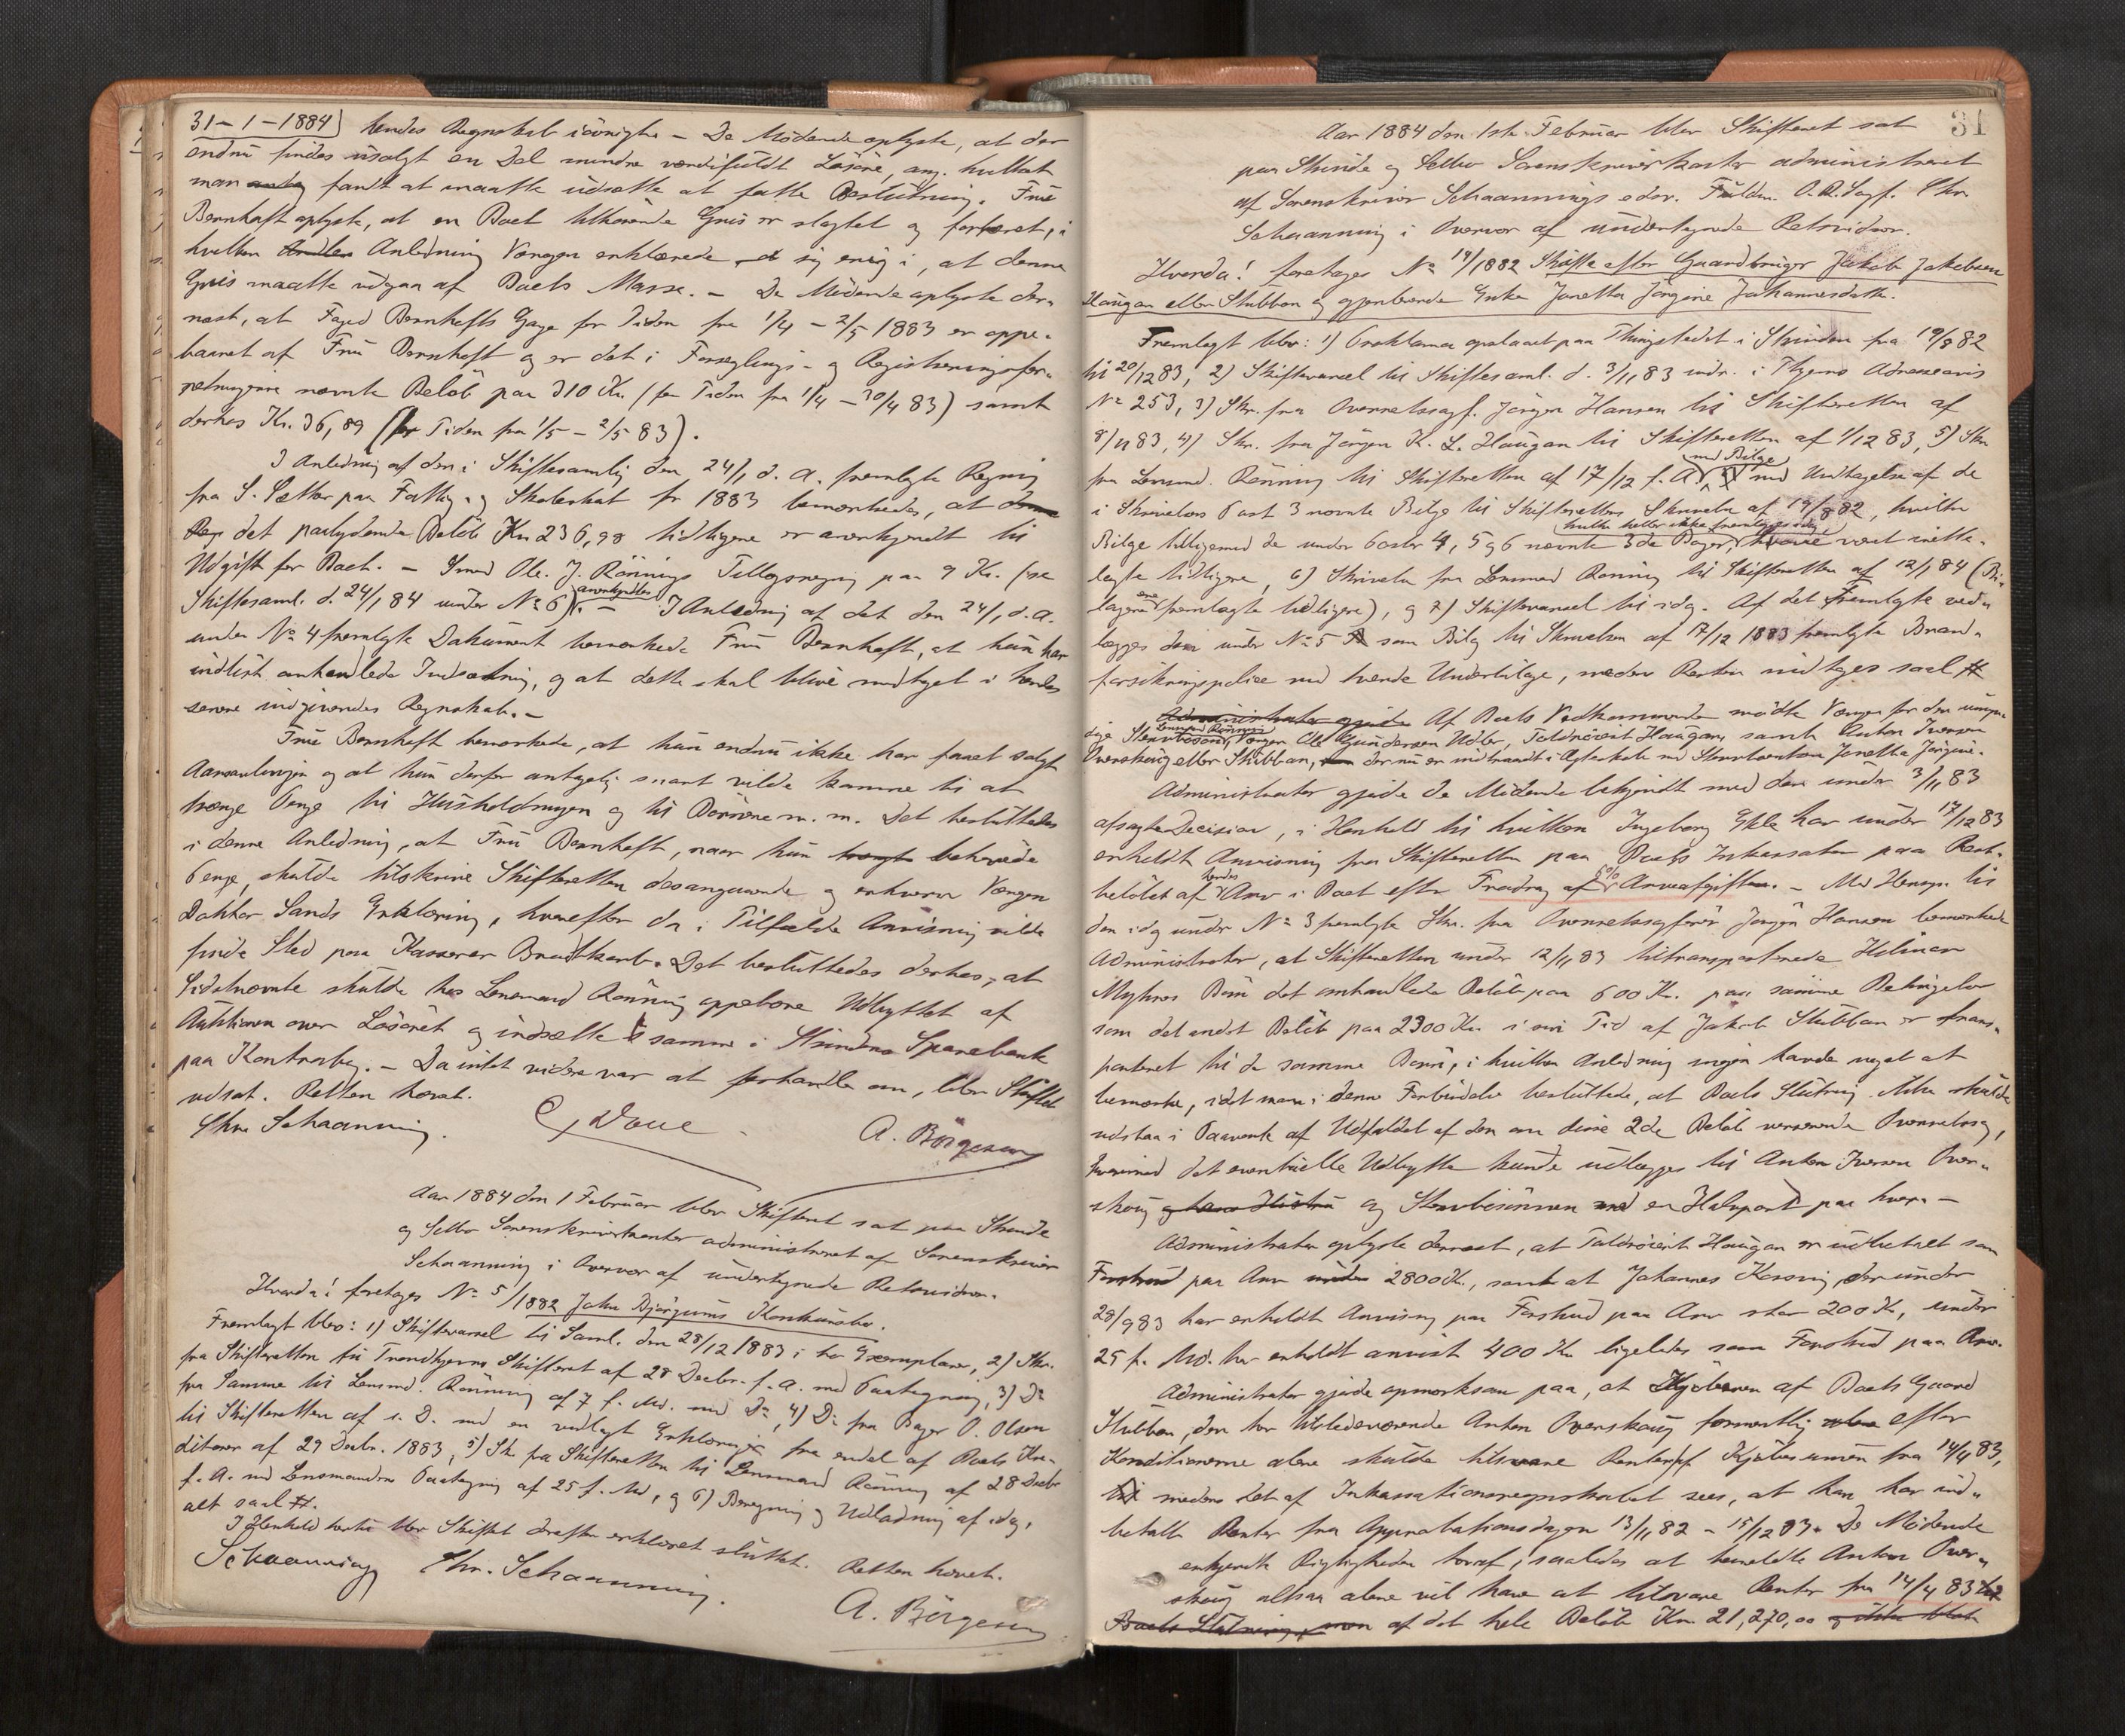 31-1-1884) hendes Regnskab iøvrigt. – De Mødende oplyste, at der
endnu findes usolgt en Del mindre værdifuldt Løsøre, ang. hvilket
man fandt at maatte udsætte at fatte Beslutning. Frue
Bernhoft oplyste, at en Boet tilhørende Gris er slagtet og fortæret, i
hvilken Anledning Værgen erklærede sig enig i, at denne
Gris maatte udgaa af Boets Masse. – De Mødende oplyste der-
næst, at Foged Bernhofts Gage for Tiden fra 1/4 – 2/5 1883 er oppe-
baaret af Frue Bernhoft og er det i Forseglings- og Registreringsfor-
retningerne nævnte Beløb paa 310 Kr. (for Tiden fra 1/4 – 30/4 83) samt
derhos Kr. 36,89 (for Tiden fra 1/5 – 2/5 83).
I Anledning af den i Skiftesamling den 24/1 d. A. fremlagte Regning
fra S. Sætter paa Fattig- og Skoleskat for 1883 bemærkedes, at
det paalydende Beløb Kr. 236,98 tidligere er anerkjendt til
Udgift for Boet. – Imod Ole J. Rönnings Tillægsregning paa 9 Kr. (se
Skiftesaml. d. 24/1 84 under No 6) anerkjendtes. – I Anledning af det den 24/1 d. A.
under No 4 fremlagte Dokument bemærkede Frue Bernhoft, at hun har
indlöst omhandlede Indsætning, og at dette skal blive medtaget i hendes
senere indgivendes Regnskab. –
Frue Bernhoft bemærkede, at hun endnu ikke har faaet solgt
og at hun derfor antagelig snart vilde komme til at
trænge Penge til Husholdningen og til Børnene m. m. Det besluttedes
i denne Anledning, at Frue Bernhoft, naar hun behøvede
Penge, skulde tilskrive Skifteretten desangaaende og erhverve Værgen
Doktor Sands Erklæring, hvorefter da i Tilfælde Anvisning vilde
finde Sted paa Kasserer Brodtkorb. Det besluttedes derhos, at
Sidstnævnte skulde hos Lensmand Rönning oppebære Udbyttet af
Auktionen over Løsøret og indsætte samme i Strindens Sparebank
paa Kontrabog. – Da intet videre var at forhandle om, blev Skiftet
udsat. Retten hævet.
Chr. Schaanning. C. Doue A. Börgesen
Aar 1884 den 1 Februar blev Skifteret sat paa Strinde
og Selbo Sorenskriverkontor administreret af Sorenskriver
Schaanning i Overvær af undertegnede Retsvidner.
Hvorda! foretages No 5/1882 John Bjørgums Konkursbo.
Fremlagt blev: 1) Skiftevarsel til Saml. den 28/12 1883 i to Exemplarer, 2) Skr.
fra Skifteretten til Trondhjems Skifteret af 28 Decbr. f. A. med Paategning, 3) Do
fra Samme til Lensmd. Rönning af 7 f. Md. med Do, 4) Do fra Bager O. Olsen
til Skifteretten af s. D. med en vedlagt Erklæring fra endel af Boets Kre-
ditorer af 29 Decbr. 1883, 5) Sk. fra Skifteretten til Lensmand Rönning af 28 Decbr
f. A. med Lensmandens Paategning af 25 f. Md, og 6) Beregning og Udlodning af idag,
alt saal. #.
I Henhold hertil blev Skiftet derefter erklæret sluttet. Retten hævet.
Schaanning Chr. Schaanning. A. Börgesen
31
Aar 1884 den 1ste Februar blev Skifteret sat
paa Strinde og Selbo Sorenskriverkontor administreret
af Sorenskriver Schaannings edsv. Fuldm. O.R.Sagf. Chr.
Schaanning i Overvær af undertegnede Retsvidner.
Hvorda! foretages No 14/1882 Skifte efter Gaardbruger Jakob Jakobsen
Haugan eller Stubban og gjenlevende Enke Jonetta Jörgine Johannesdatter.
Fremlagt blev: 1) Proklama opslaaet paa Thingstedet i Strinden fra 19/8 82
til 20/12 83, 2) Skiftevarsel til Skiftesaml. d. 3/11 83 indr. i Thjems Adresseavis
No 253, 3) Skr. fra Overretssagf. Jörgen Hansen til Skifteretten af
8/11 83, 4) Skr. fra Jörgen K. L. Haugan til Skifteretten af 1/12 83, 5) Skr
fra Lensmd. Rönning til Skifteretten af 17/12 f. A. med Bilge med Undtagelse af de
i Skrivelsens Post 3 nævnte Bilge til Skifterettens Skrivelse af 19/8 82, hvilke
Bilge tilligemed de under Poster 4, 5 og 6 nævnte 3de Bøger, hvilke heller ikke fremlægges idag, have været irette-
lagte tidligere, 6) Skrivelse fra Lensmand Rönning til Skifteretten af 12/1 84 (Bi-
lagene fremlagte tidligere), og 7) Skiftevarsel til idag. Af det fremlagte ved-
lægges den under No 5 som Bilg til Skrivelsen af 17/12 1883 fremlagte Brand-
forsikringspolice med tvende Underbilage, medens Resten indtages saal #
Administrator gjorde Af Boets Vedkommende mødte Værgen for den umyn-
dige Stervbosön, Lensmand Rönning, Værgen Ole Gundersen Udler, Toldroiert Haugan, samt Anton Iversen
Overskoug eller Stubban, der nu er indtraadt i Ægteskab med Stervboenken Jonetta Jørgine.
Administrator gjorde de Mødende bekjendt med den under 3/11 83
afsagte Decision, i Henhold til hvilken Ingeborg Ekle har under 17/12 83
erholdt Anvisning fra Skifteretten paa Boets Inkassator paa Rest-
beløbet af hendes Arv i Boet efter Fradrag af 5% Arveafgiften. – Med Hensyn til
den idag under No 3 fremlagte Skr. fra Overretssagfører Jørgen Hansen bemærkede
Administrator, at Skifteretten under 12/11 83 tiltransporterede Helmer
Myhres Bön det omhandlede Beløb paa 600 Kr. paa samme Betingelser
som det andet Beløb paa 2300 Kr. i sin Tid af Jakob Stubban er trans-
porteret til de samme Börn, i hvilken Anledning ingen havde noget at
bemærke, idet man i denne Forbindelse besluttede, at Boets Slutning ikke skulde
udstaa i Paavente af Udfaldet af den om disse 2de Beløb verserende Overretssag,
hvorimod det eventuelle Udbytte kunde udlægges til Anton Iversen Over-
skoug og hans Hustru og Stervbosönnen med en Halvpart paa hver. –
Administrator oplyste dernæst, at Toldroiert Haugan er udbetalt som
Forskud paa Arv 2800 Kr., samt at Johannes Kosvig, der under
28/9 83 har erholdt Anvisning paa Forskud paa Arv stor 200 Kr., under
25 f. Md. har erholdt anvist 400 Kr. ligeledes som Forskud paa Arv.
Administrator gjorde opmærksom paa, at Kjøberen af Boets Gaard
Stubban, den her tilstedeværende Anton Overskoug formentlig efter
Konditionerne alene skulde tilsvare Renter af Kjøbesummen fra 14/4 83,
medens det af Inkassationsregnskabet sees, at han har ind-
betalt Renter fra Approbationsdagen 13/11 82 – 15/12 83. De Mødende
erkjendte Rigtigheden heraf, saaledes at bemeldte Anton Over-
skoug altsaa alene vil have at tilsvare Renter fra 14/4 83
Boets Slutning, men af det hele Beløb Kr. 21,270,00 og ikke blot